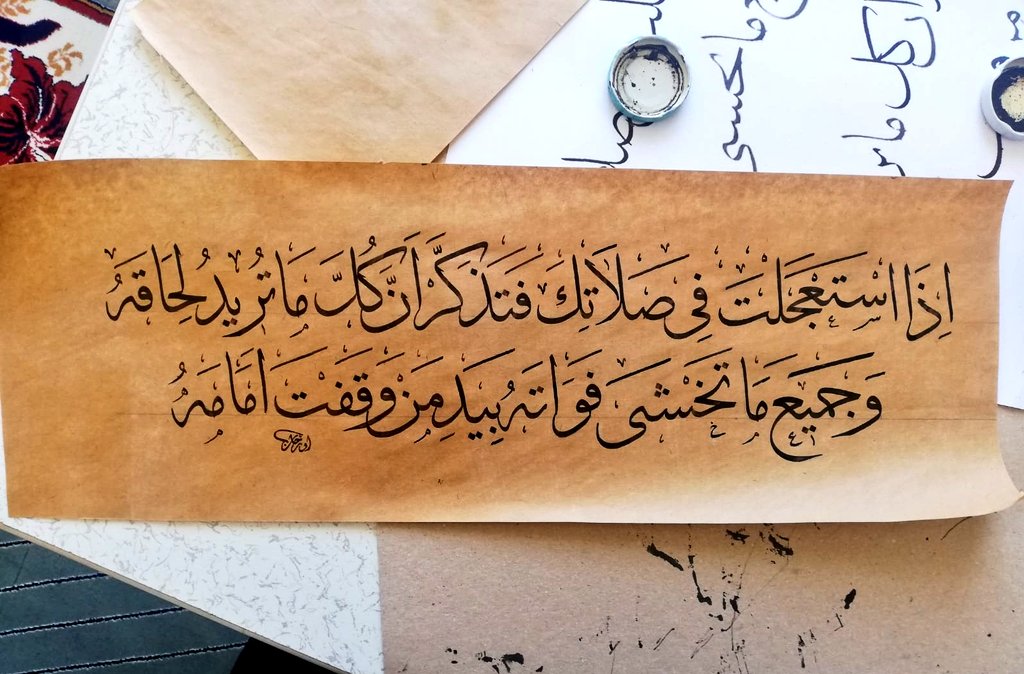 اِذَا اسْتَعْجَلتَ فِي صَلَاتِكَ فَتَذَكَّرْ اَنَّ كُلَّ مَا تُرِيدُ لِحَاقَهُ
وَجَمِيعَ مَا تَخْشَى فَوَاتَهُ بِيَدِ مَنْ وَقَفْتَ اَمَامَهُ